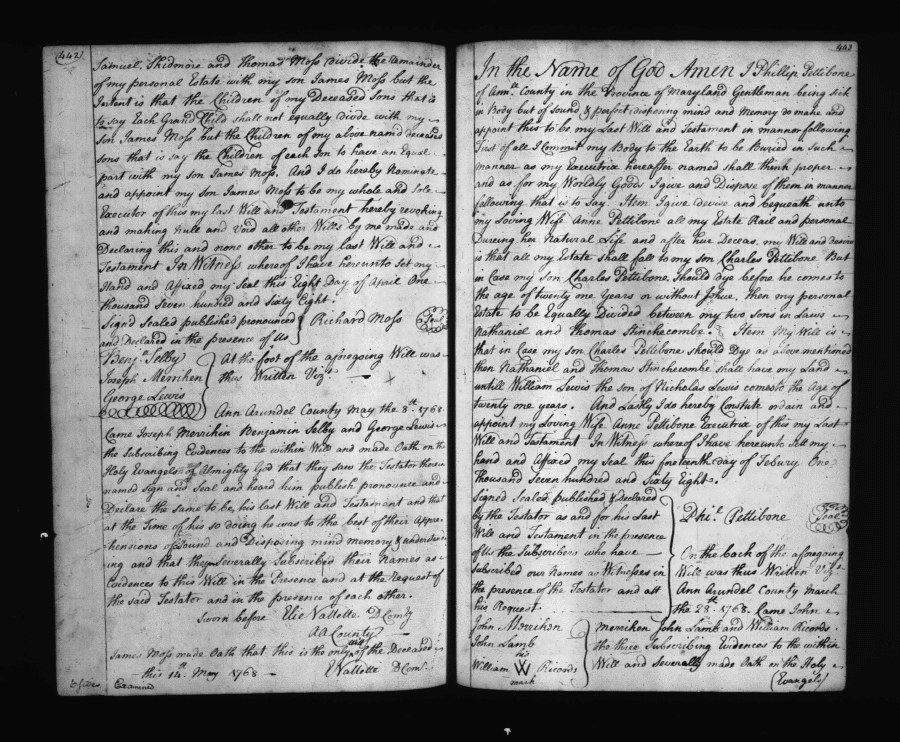 442
Samuel Skidmore and Thomas Moss Divide the Remainder
of my personal Estate with my son James Moss but the
Intent is that the Children of my Deceased Sons that is
to say Each Grand Child shall not equally divde with my
Son James Moss but the Children of my above named deceased
sons that is say the Children of each Son to have an Equal
part with my son James Moss. And I do hereby Nominate
and appoint my Son James Moss to be my whole and Sole
Executor of this my last Will and Testament hereby revoking
and making Null and Void all other Wills by me made and
Declaring this and none other to be my Last Will and
Testament In Witness whereof I have hereunto set my
Hand and Affixed my Seal this Eight Day of April One
thousand Seven hundred and Sixty Eight.
Signd Sealed published pronounced Richard Moss Seal
and Declared in the presence of Us
Benja. Selby
Joseph Merriken
George Lewis
At the foot of the aforegoing Will was
thus Written Vizt.
Ann Arundel County May the 8th. 1768
Came Joseph Merrikin Benjamin Selby and George Lewis
the Subscribing Evidences to the within Will and made Oath on the
Holy Evangels of Almighty God that they saw the Testator therein
named Sign and Seal and heard him publish pronounce and
Declare the same to be, his last Will and Testament and that
at the Time of his so doing he was to the best of their Appre-
hensions of Sound and Disposing mind memory &
ing and that they Severally Subscribed their Names as
Evidences to this Will in the Presence and at the Request of
the said Testator and in the presence of each other.
Sworn before Elie Vallette D Comry
AA County
Same Moss made Oath that this is the only will of the Deceased
this 14. May 1768
E Vallette D Com.
Examined
443
In the Name of God Amen I Phillip Pettibone
of Ann. County in the Province of Maryland Gentleman being sick
in Body but of sound & perfect disposing mind and Memory do make and
appoint this to be my Last Will and Testament in mannor following
First of all I Commit my Body to the Earth to be Buried in Such
manner as my Executrix hereafter named shall think proper
and as for my Worldly Goods I give and Dispose of them in manner
following that is to Say. Item I give devise and bequeath unto
my Loving Wife Anne Pettibone all my Estate Rail and personal
Dureing her Natural Life and after hur Deceas. my Will and desire
is that all my Estate shall fall to my Son Charles Pettibone But
in Case my Son Charles Pettibone should Dye before he comes to
the age of twenty one Years or without Ishue. then my personal
Estate to be Equally Divided between my two Sons in Laws
Nathaniel and Thomas Stinchecombe. Item My Will is
that in Case my Son Charles Pettibone should Dye as above mentioned
then Nathaniel and Thomas Stinchecombe shall have my Land
untill William Lewis the son of Nicholas Lewis comes to the Age of
twenty one years. And Lastly I do hereby Constute ordain and
appoint my Loving Wife Anne Pettibone Executrix of this my Last
Will and Testament In Witness whereof I have hereunto Sett my
hand and Affixed my Seal this forteenth day of Febury One
Thousand Seven hundred and Sixty Eight.
Signed Sealed published & Declared
by the Testator as and for his Last
Will and Testament in the presence
of Us the Subscribers who have
subscribed our Names as Witnesses in
the presence of the Testator and att
his Request.
Phil. Pettibone Seal
On the back of the aforegoing
Will was thus Written Vizt.
Ann Arundel County March
the 28th. 1768. Came John
John Merriken
John Lamb
his
William W Ricords
mark
merriken John Lamb and William Ricords.
the three Subscribing Evidences to the within
Will and Severally made Oath on the Holy
(Evangels)